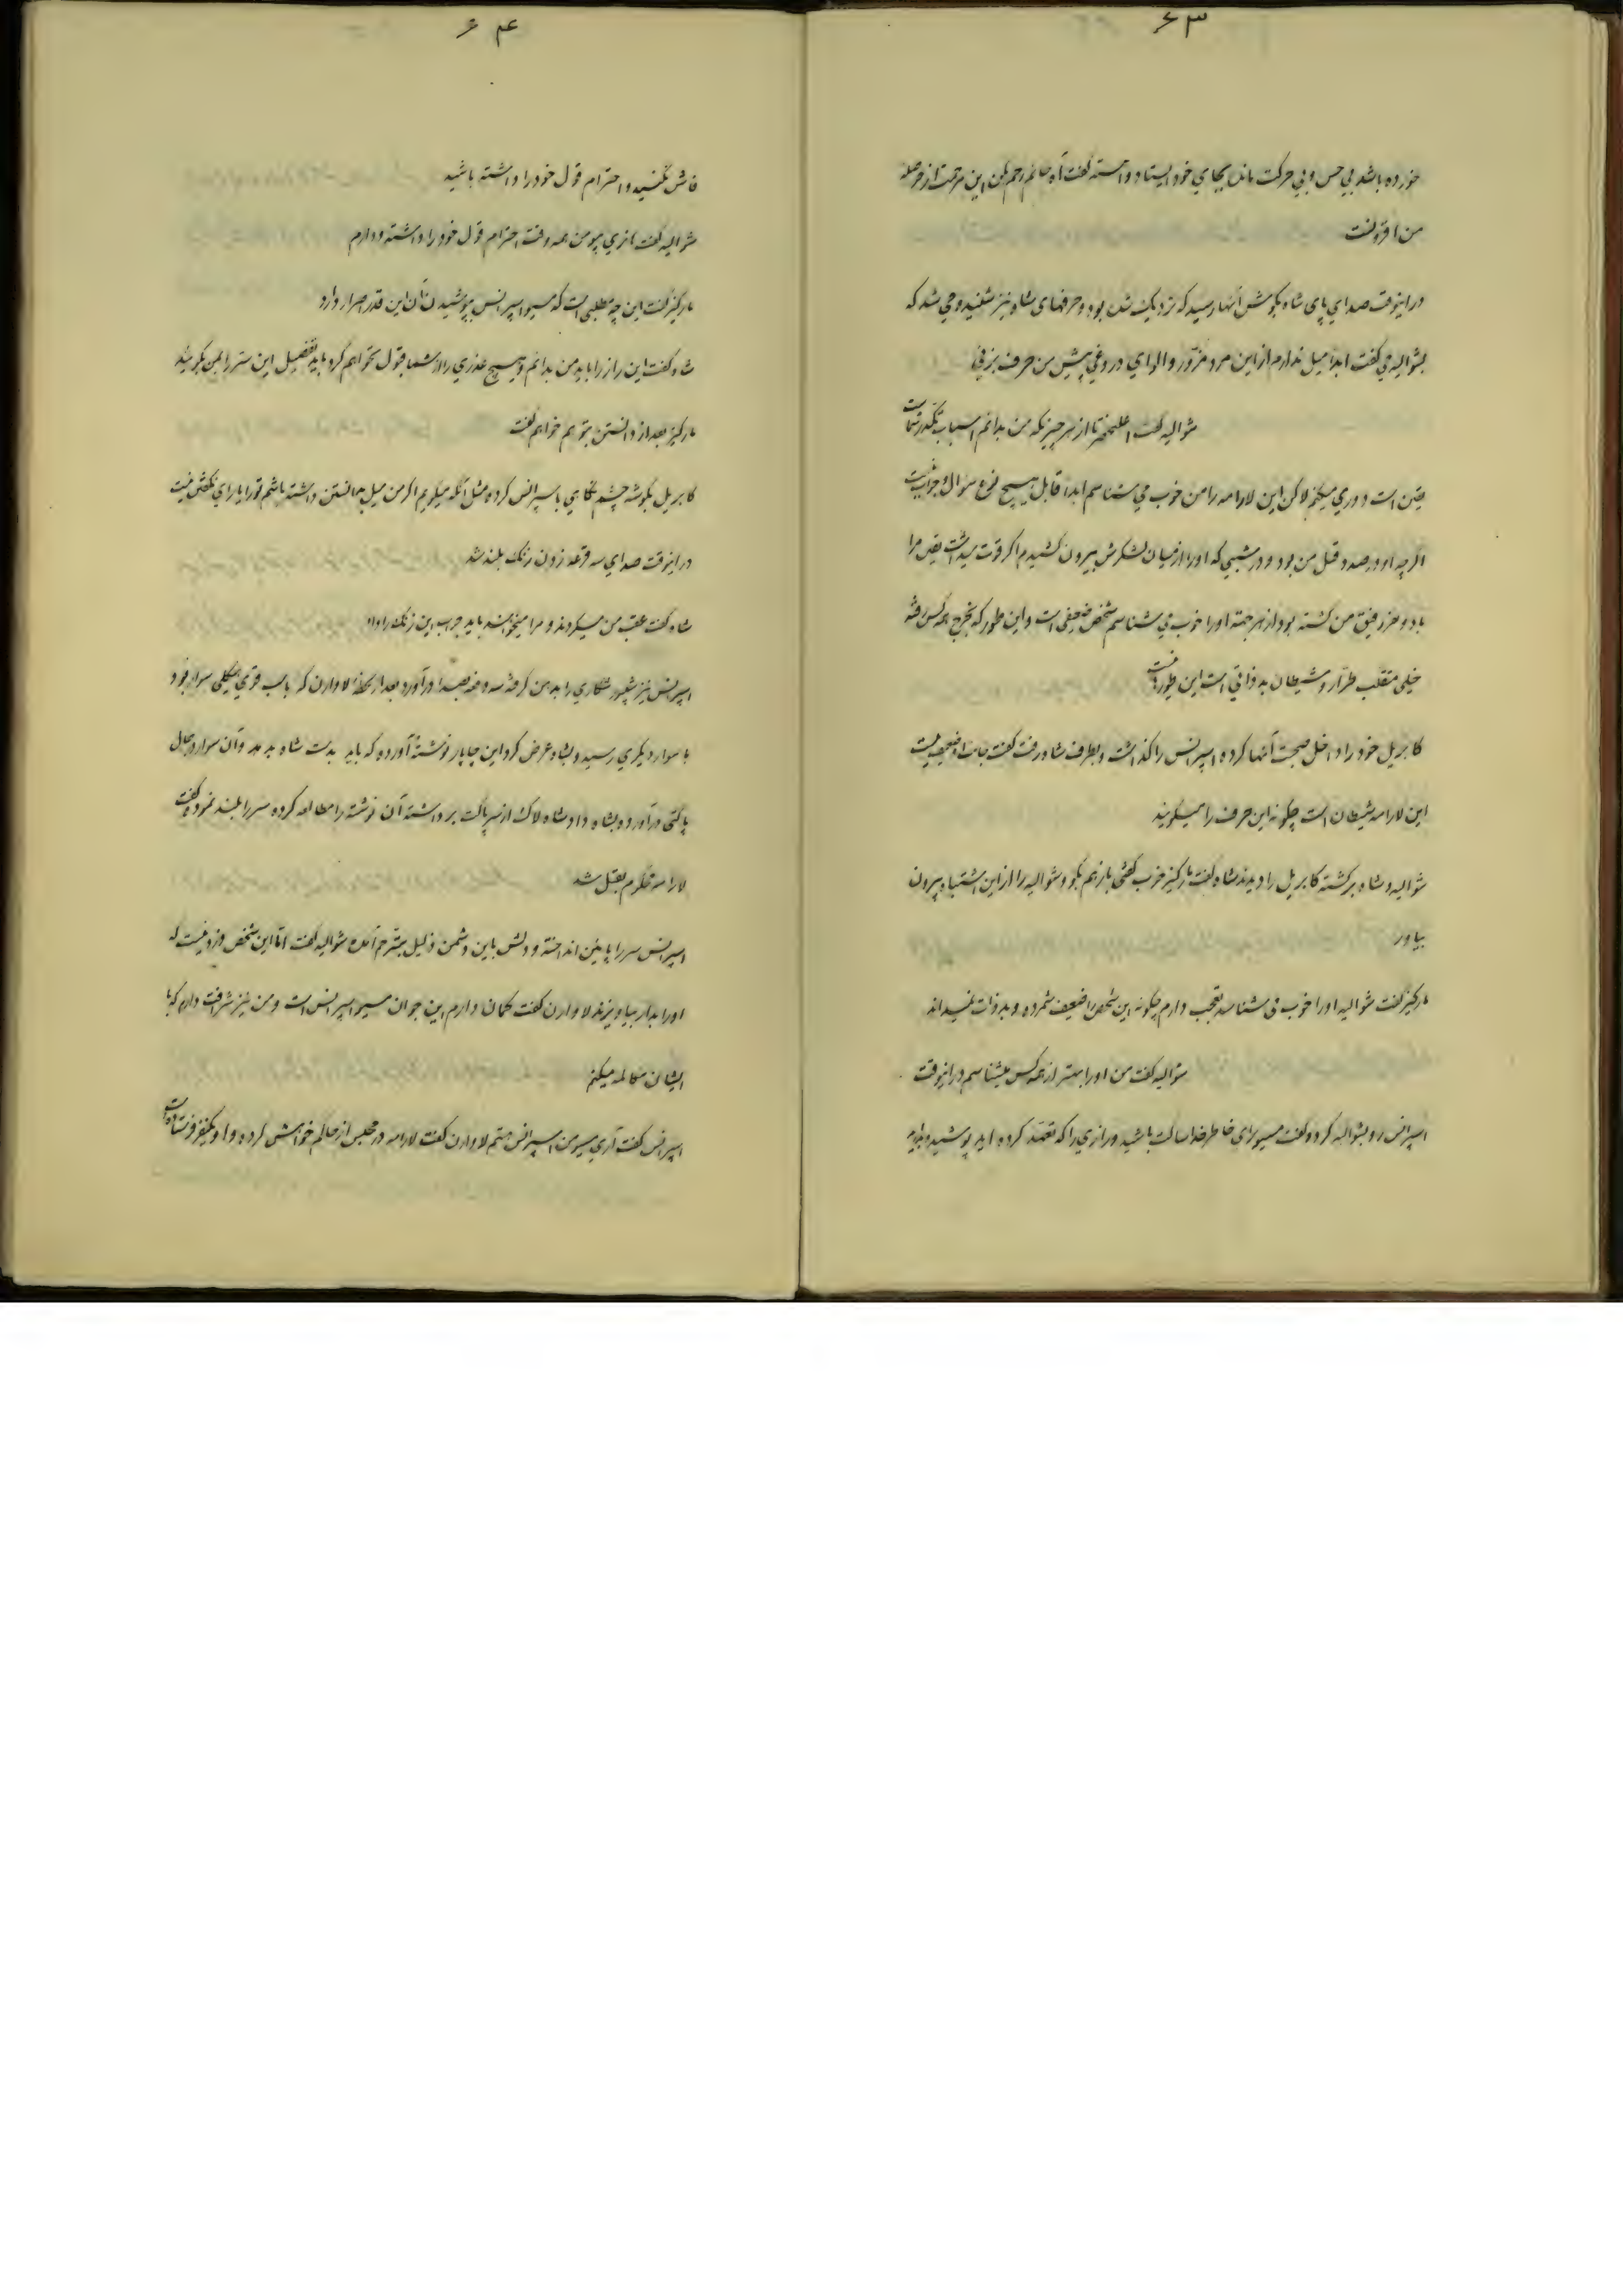 ۶۳
خورده باشد بی حس و بی حرکت ماند بجای خود ایستاد و آهسته گفت آه خانم رحم کن این مرتبه از حوصله
من افزونست
در اینوقت صدای پای شاه بگوش آنها رسید که نزدیک شده بود و حرفهای شاه نیز شنیده می شد که
بشوالیه می گفت ابداً میل ندارم از این مرد مزور و الوای دروغی پیش من حرف بزنی
شوالیه گفت اعلیحضرتا از هر چیزیکه من بدانم اسباب تکدر شماست
یقین است دوری میکنم لاکن این لارامه را من خوب می شناسم ابداً قابل هیچ نوع سؤال و جواب نیست
اگر چه او در صدد قتل من بود و در شبی که او را از میان لشکرش بیرون کشیدم اگر قوت میداشت یقین مرا
با دو نفر رفیق من کشته بود از هر جهته او را خوب می شناسم شخص ضعیفی است و این طور که بخرج همه کس رفته
خیلی متقلب طرّار و شیطان بد ذاتی است این طور نیست
کابریل خود را داخل صحبت آنها کرده اسپرانس را گذاشت و بطرف شاه رفت گفت جانب او ضعیف نیست
این لارامه شیطان است چگونه این حرف را میگوئید
شوالیه و شاه برگشته کابریل را دیدند شاه گفت مارکیز خوب گفتی باز هم بگو و شوالیه را از این اشتباه بیرون
بیاور
مارکیز گفت شوالیه او را خوب می شناسد تعجب دارم چگونه این شخص را ضعیف شمرده و بد ذات نمیداند
شوالیه گفت من او را بهتر از همه کس میشناسم در اینوقت
اسپرانس رو بشوالیه کرد و گفت مسیو برای خاطر خدا ساکت باشید و رازی را که تعهد کرده اید بپوشید و ابداً
۶۴
فاش نکنید و احترام قول خود را داشته باشید
شوالیه گفت بازی مسیو من همه وقت احترام قول خود را داشته و دارم
مارکیز گفت این چه مطلبی است که مسیو اسپرانس بپوشیدن آن این قدر اصرار دارد
شاه گفت این راز را باید من بدانم و هیچ عذری را از شما قبول نخواهم کرد باید تفصیل این ستر را بمن بگوئید
مارکیز بعد از دانستن بتو هم خواهم گفت
کابریل بگوشه چشم نگاهی باسپرانس کرده مثل آنکه میگویم اگر من میل بدانستن داشته باشم تو را یارای نگفتن نیست
در اینوقت صدای سه دفعه زدن زنگ بلند شد
شاه گفت عقب من میگردند و مرا میخواهند باید جواب این زنگ را داد
اسپرانس نیز شیپور شکاری را بدهن گرفته سه دفعه بصدا در آورد بعد از لحظهٔ لاوارن که با اسب قوی هیکلی سوار بود
با سوار دیگری رسید و بشاه عرض کرد این چاپار نوشتهٔ آورده که باید بدست شاه بدهد و آن سوار در حال
پاکتی در آورده بشاه داد شاه لاک از سر پاکت برداشته آن نوشته را مطالعه کرده سر را بلند نموده گفت
لارامه محکوم بقتل شد
اسپرانس سر را پایین انداخته و دلش باین دشمن ذلیل بترحم آمده شوالیه گفت اما این شخص دزد نیست که
او را بدار بیاویزند لاوارن گفت گمان دارم این جوان مسیو اسپرانس است و من نیز شرافت دارم که با
ایشان مکالمه میکنم
اسپرانس گفت آری مسیو من اسپرانس هستم لاوارن گفت لارامه در مجلس از حاکم خواهش کرده و او یکنفر فرستاده است